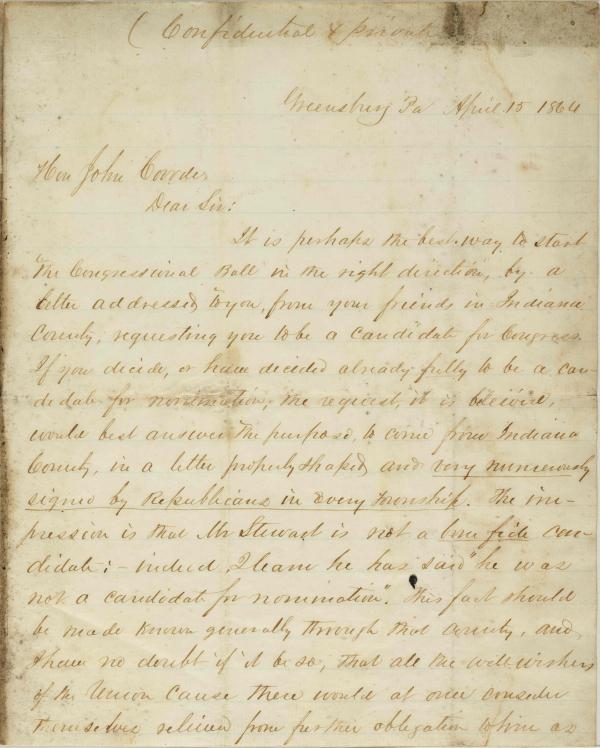 ( Confidential & private
Greensburg Pa April 15 1864
Hon John Covode
Dear Sir:
It is perhaps the best way to start
"the Congressional Ball in the right direction", by a
letter addressed to you, from your friends in Indiana
County, requesting you to be a candidate for Congress.
If you decide, or have decided already fully to be a can-
didate for nomination, the request, it is believed,
would best answer the purpose, to come from Indiana
County, in a letter properly shaped and very numerously
signed by Republicans in every township. The im-
pression is that Mr Stewart is not a bona fide can-
didate; - indeed I learn he has said "he was
not a candidate for nomination". This fact should
be made known generally through that county, and
I have no doubt if it be so, that all the well-wishers
of the Union cause there would at once consider
themselves relieved from further obligation to him as